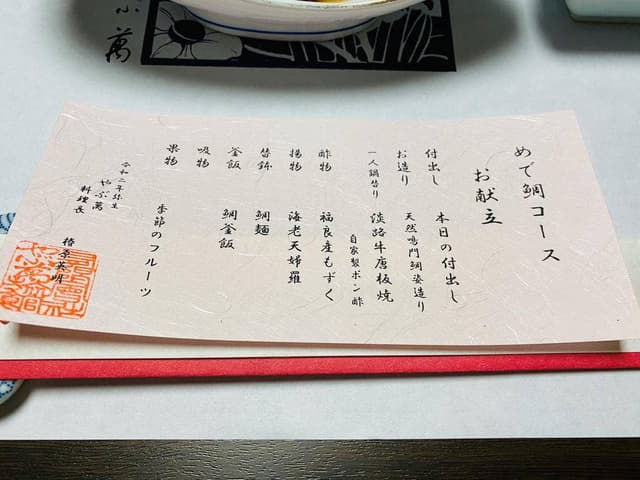 めで鯛コース
お献立
付出し 本日の付出し
お造り 天然鳴門鯛姿造り
一人鍋替り 淡路牛唐板焼
自家製ポン酢
酢物 福良産もずく
揚物 海老天婦羅
替鉢 鯛麺
釜飯 鯛釜飯
吸物
果物 季節のフルーツ
令和二年弥生
やぶ萬
料理長
榛原英明
萬